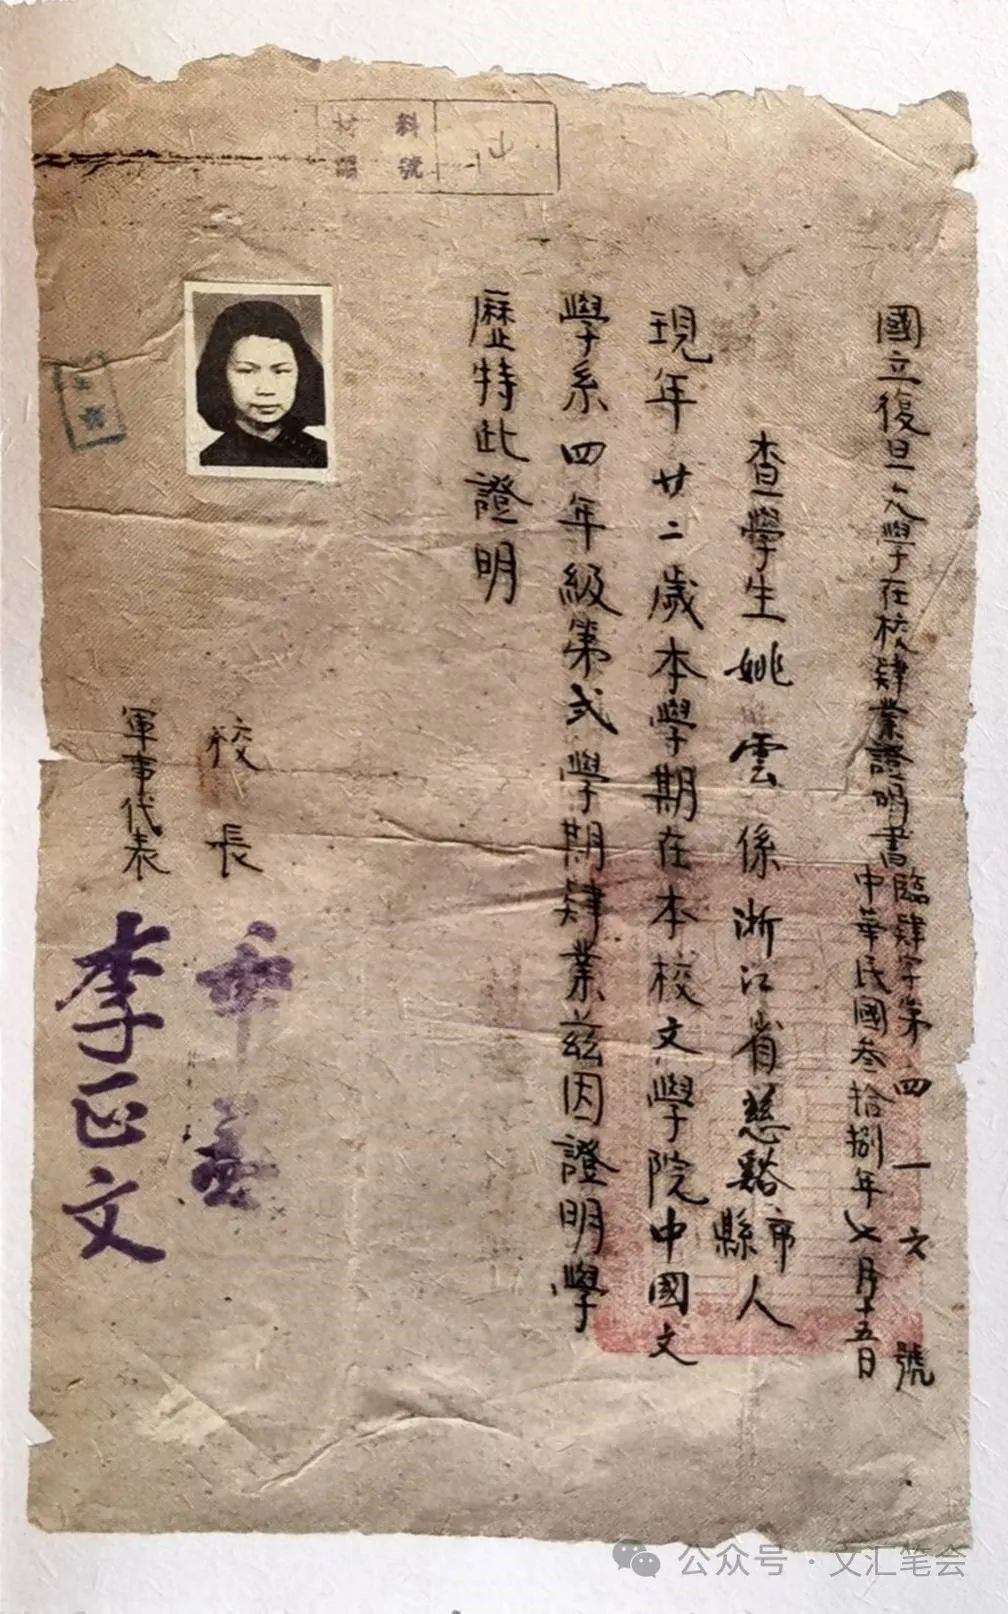 材料
號
國立復旦大學在校肄業證明書臨肄字第四一六號
中華民國叁拾捌年七月十五日
查學生姚雲係浙江省慈谿市縣人
現年廿二歲本學期在本校文學院中國文
學系四年級第弍學期肄業茲因證明學
歷特此證明
校長
軍事代表李正文
公众号·文汇笔会